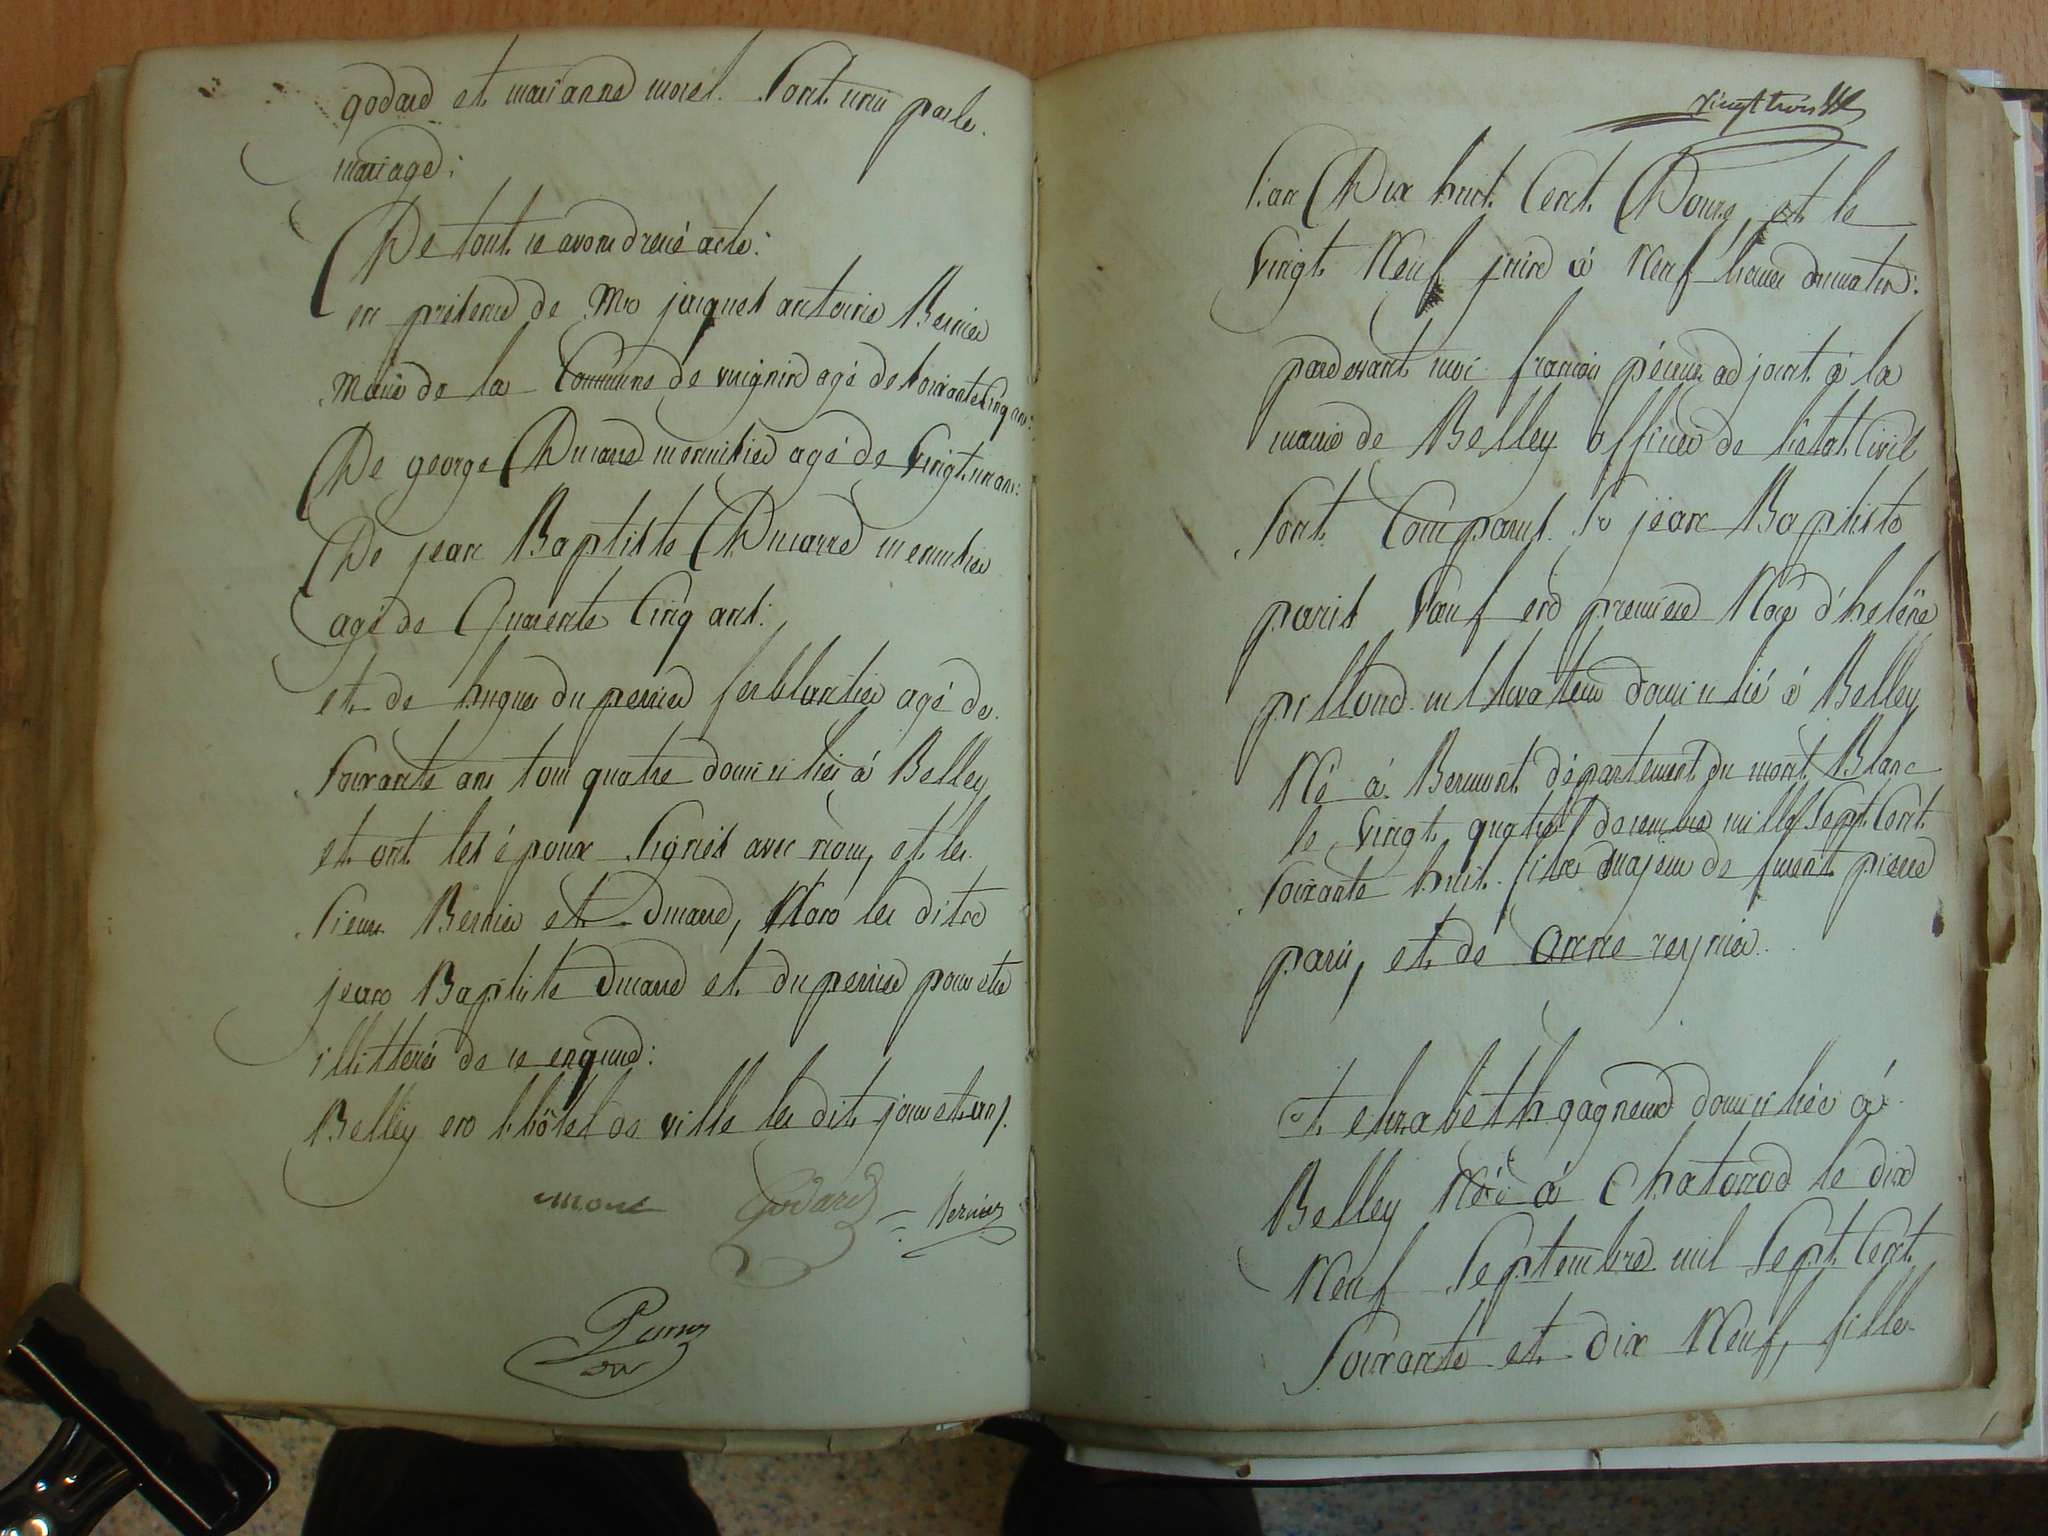 godard et marianne morel. Sont unis par le.
mariage:
De tout ce avons dressé acte:
en présence de Mr jacques antoine Bernier
Maire de la Commune de agé de soixante Cinq ans:
De george Ducarre menuisier agé de Vingt un ans:
De jean Baptiste Ducarre menuisier
agé de Quarente Cinq ans:
et de hugues du perrier ferblantier agé de.
Soixante ans tous quatre domiciliés à Belley
et ont les époux Signés avec nous, et les
Sieurs Bernier et Ducarre, Non les dits
jean Baptiste Ducarre et du perrier pour etre
illitterés de ce enquis:
Belley en l'hôtel de ville les dits jour et an
morel Godard Bernier
vingt trois
l'an Dix huit Cent Douze, et le
Vingt Neuf juin à Neuf heures du matin:
pardevant moi françois adjoint à la
mairie de Belley officier de l'état Civil
Sont Comparus Sr jean Baptiste
paris Veuf en premiere Noce d'helène
pilloud cultivateur domicilié à Belley
Né à Bermont département du mont Blanc
le Vingt quatre decembre mille Sept Cent
Soixante huit. fils majeur de furent pierre
paris, et de Anne reynier.
et elizabeth gagneux domiciliée à
Belley Née à Chatonod le dix
Neuf Septembre mil Sept Cent
Soixante et dix Neuf, fille